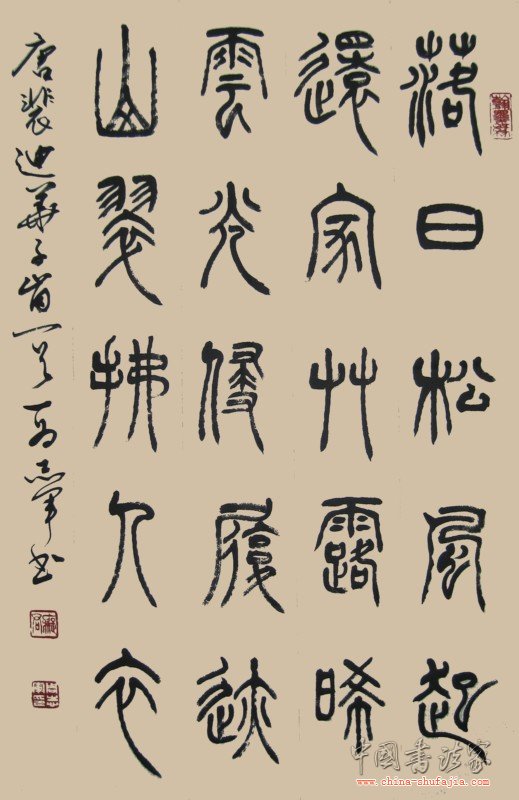 落日松風起
還家艸露晞
雲光侵履迹
山翠拂人衣
唐裴迪華子崗一首
志軍書
中國書法家
www.china-shufajia.com